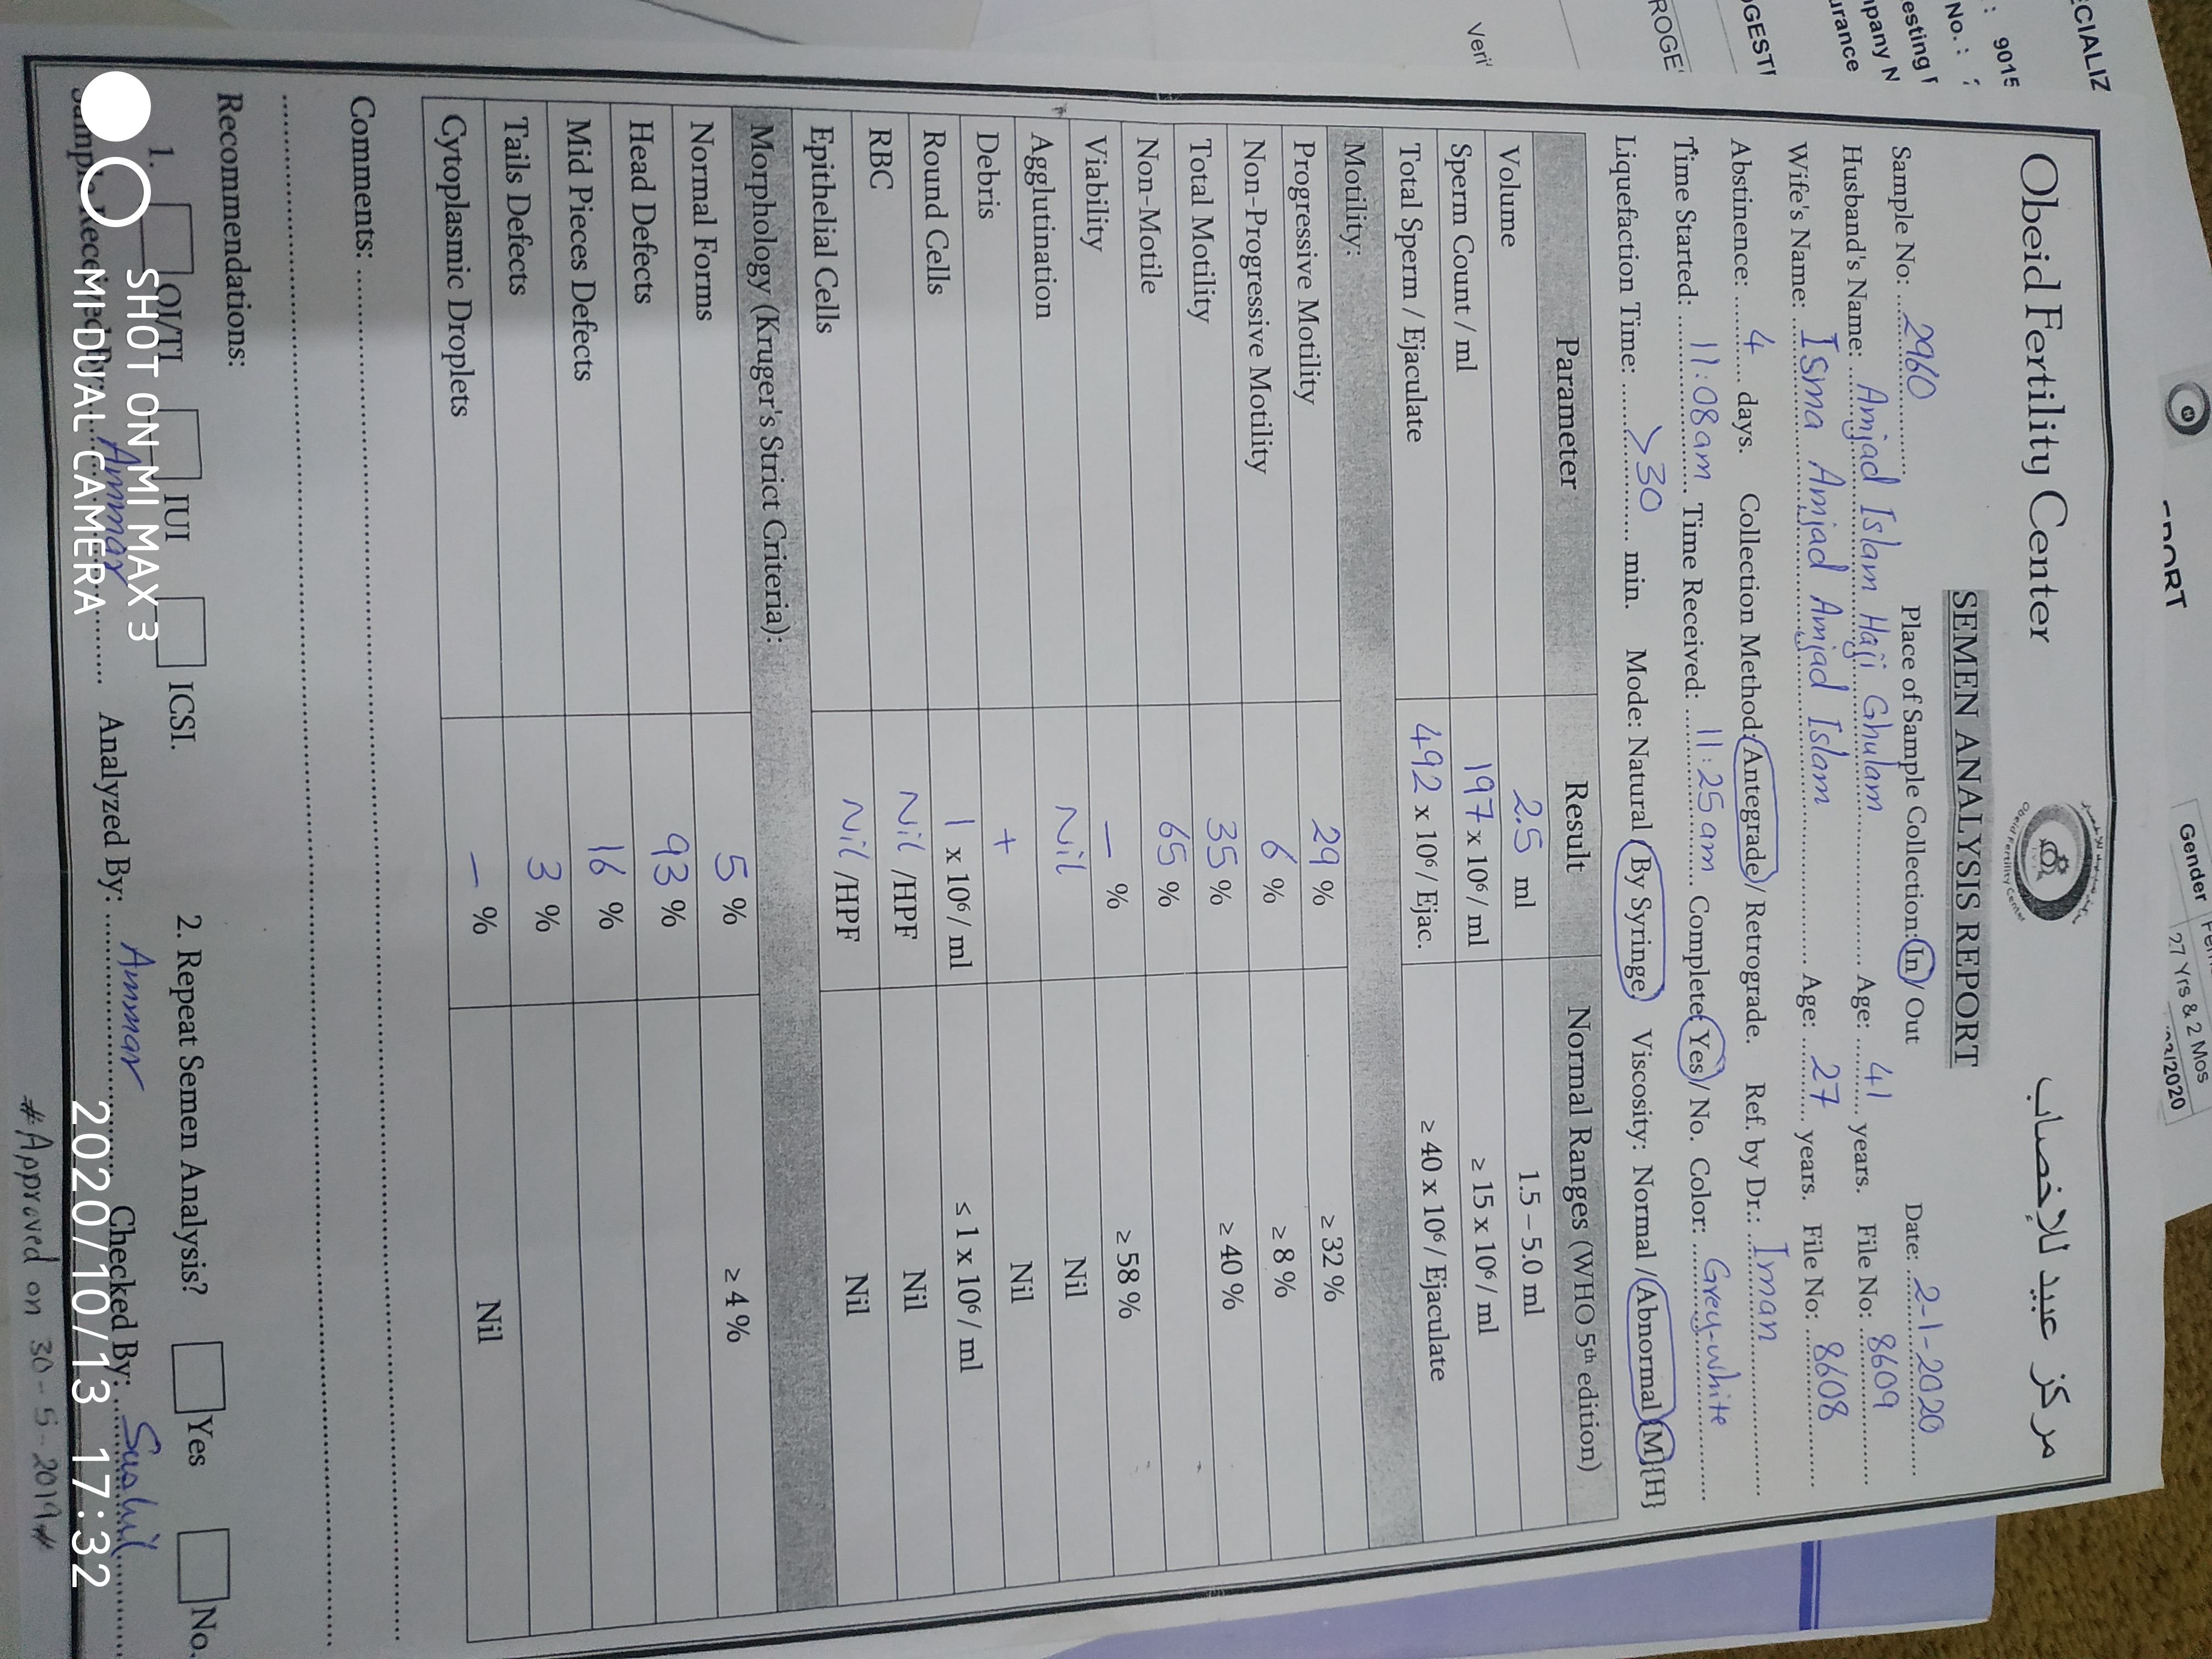 Obeid Fertility Center
مركز عبيد للإخصاب
Obeid Fertility Center
SEMEN ANALYSIS REPORT
Sample No: 2960 Place of Sample Collection: In / Out Date: 2-1-2020
Husband's Name: Amjad Islam Haji Ghulam Age: 41 years. File No: 8609
Wife's Name: Isma Amjad Amjad Islam Age: 27 years. File No: 8608
Abstinence: 4 days. Collection Method: Antegrade / Retrograde. Ref. by Dr.: Iman
Time Started: 11:08am Time Received: 11:25am Complete: Yes / No. Color: Grey-white
Liquefaction Time: >30 min. Mode: Natural / By Syringe Viscosity: Normal / Abnormal {M}{H}
Parameter Result Normal Ranges (WHO 5th edition)
Volume 2.5 ml 1.5 – 5.0 ml
Sperm Count / ml 197 x 10⁶ / ml ≥ 15 x 10⁶ / ml
Total Sperm / Ejaculate 492 x 10⁶ / Ejac. ≥ 40 x 10⁶ / Ejaculate
Motility:
Progressive Motility 29 % ≥ 32 %
Non-Progressive Motility 6 % ≥ 8 %
Total Motility 35 % ≥ 40 %
Non-Motile 65 %
Viability – % ≥ 58 %
Agglutination Nil Nil
Debris + Nil
Round Cells 1 x 10⁶ / ml ≤ 1 x 10⁶ / ml
RBC Nil /HPF Nil
Epithelial Cells Nil /HPF Nil
Morphology (Kruger's Strict Criteria):
Normal Forms 5 % ≥ 4 %
Head Defects 93 %
Mid Pieces Defects 16 %
Tails Defects 3 %
Cytoplasmic Droplets – % Nil
Comments:
Recommendations:
1. OI/TI IUI ICSI. 2. Repeat Semen Analysis? Yes No.
Sample Received By: Ammar Analyzed By: Ammar Checked By: Sushil
#Approved on 30-5-2019#
SHOT ON MI MAX 3
MI DUAL CAMERA
2020/10/13 17:32
ECIALIZ
: 9015
No. :
esting
mpany N
urance
OGESTI
ROGE
Veri
PORT
Gender
27 Yrs & 2 Mos
03/2020